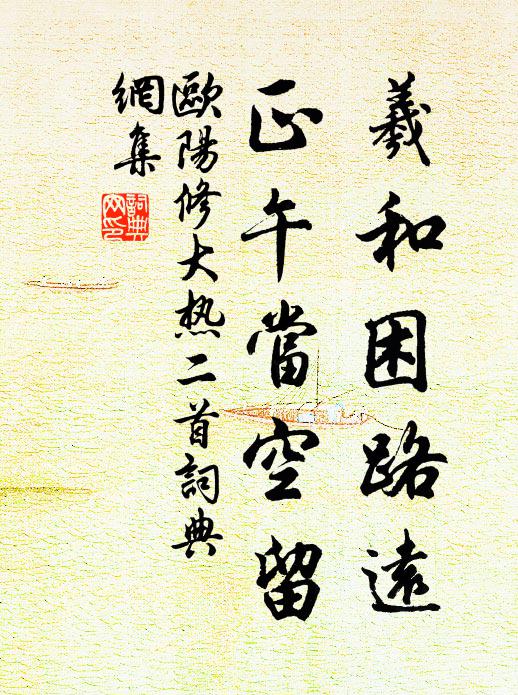 羲和困路遠
正午當空留
歐陽修大热二首詞典
網集
詞典
网印